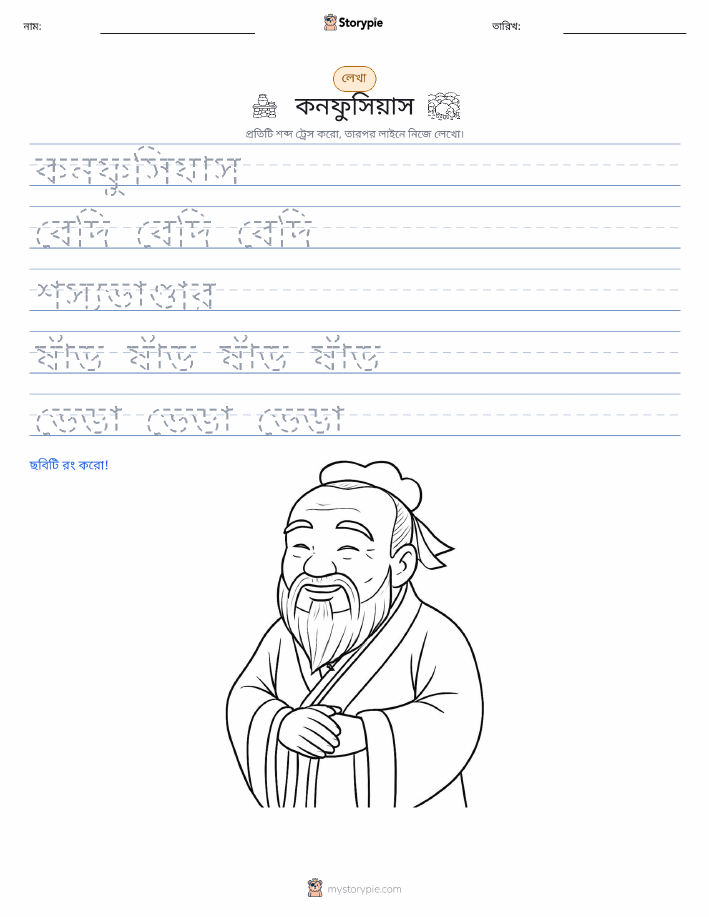 নাম:
Storypie
তারিখ:
লেখা
কনফুসিয়াস
প্রতিটি শব্দ ট্রেস করো, তারপর লাইনে নিজে লেখো।
কনফুসিয়াস
বেদি বেদি বেদি
শস্যভাণ্ডার
ষাঁড় ষাঁড় ষাঁড় ষাঁড়
ভেড়া ভেড়া ভেড়া
ছবিটি রং করো!
mystorypie.com